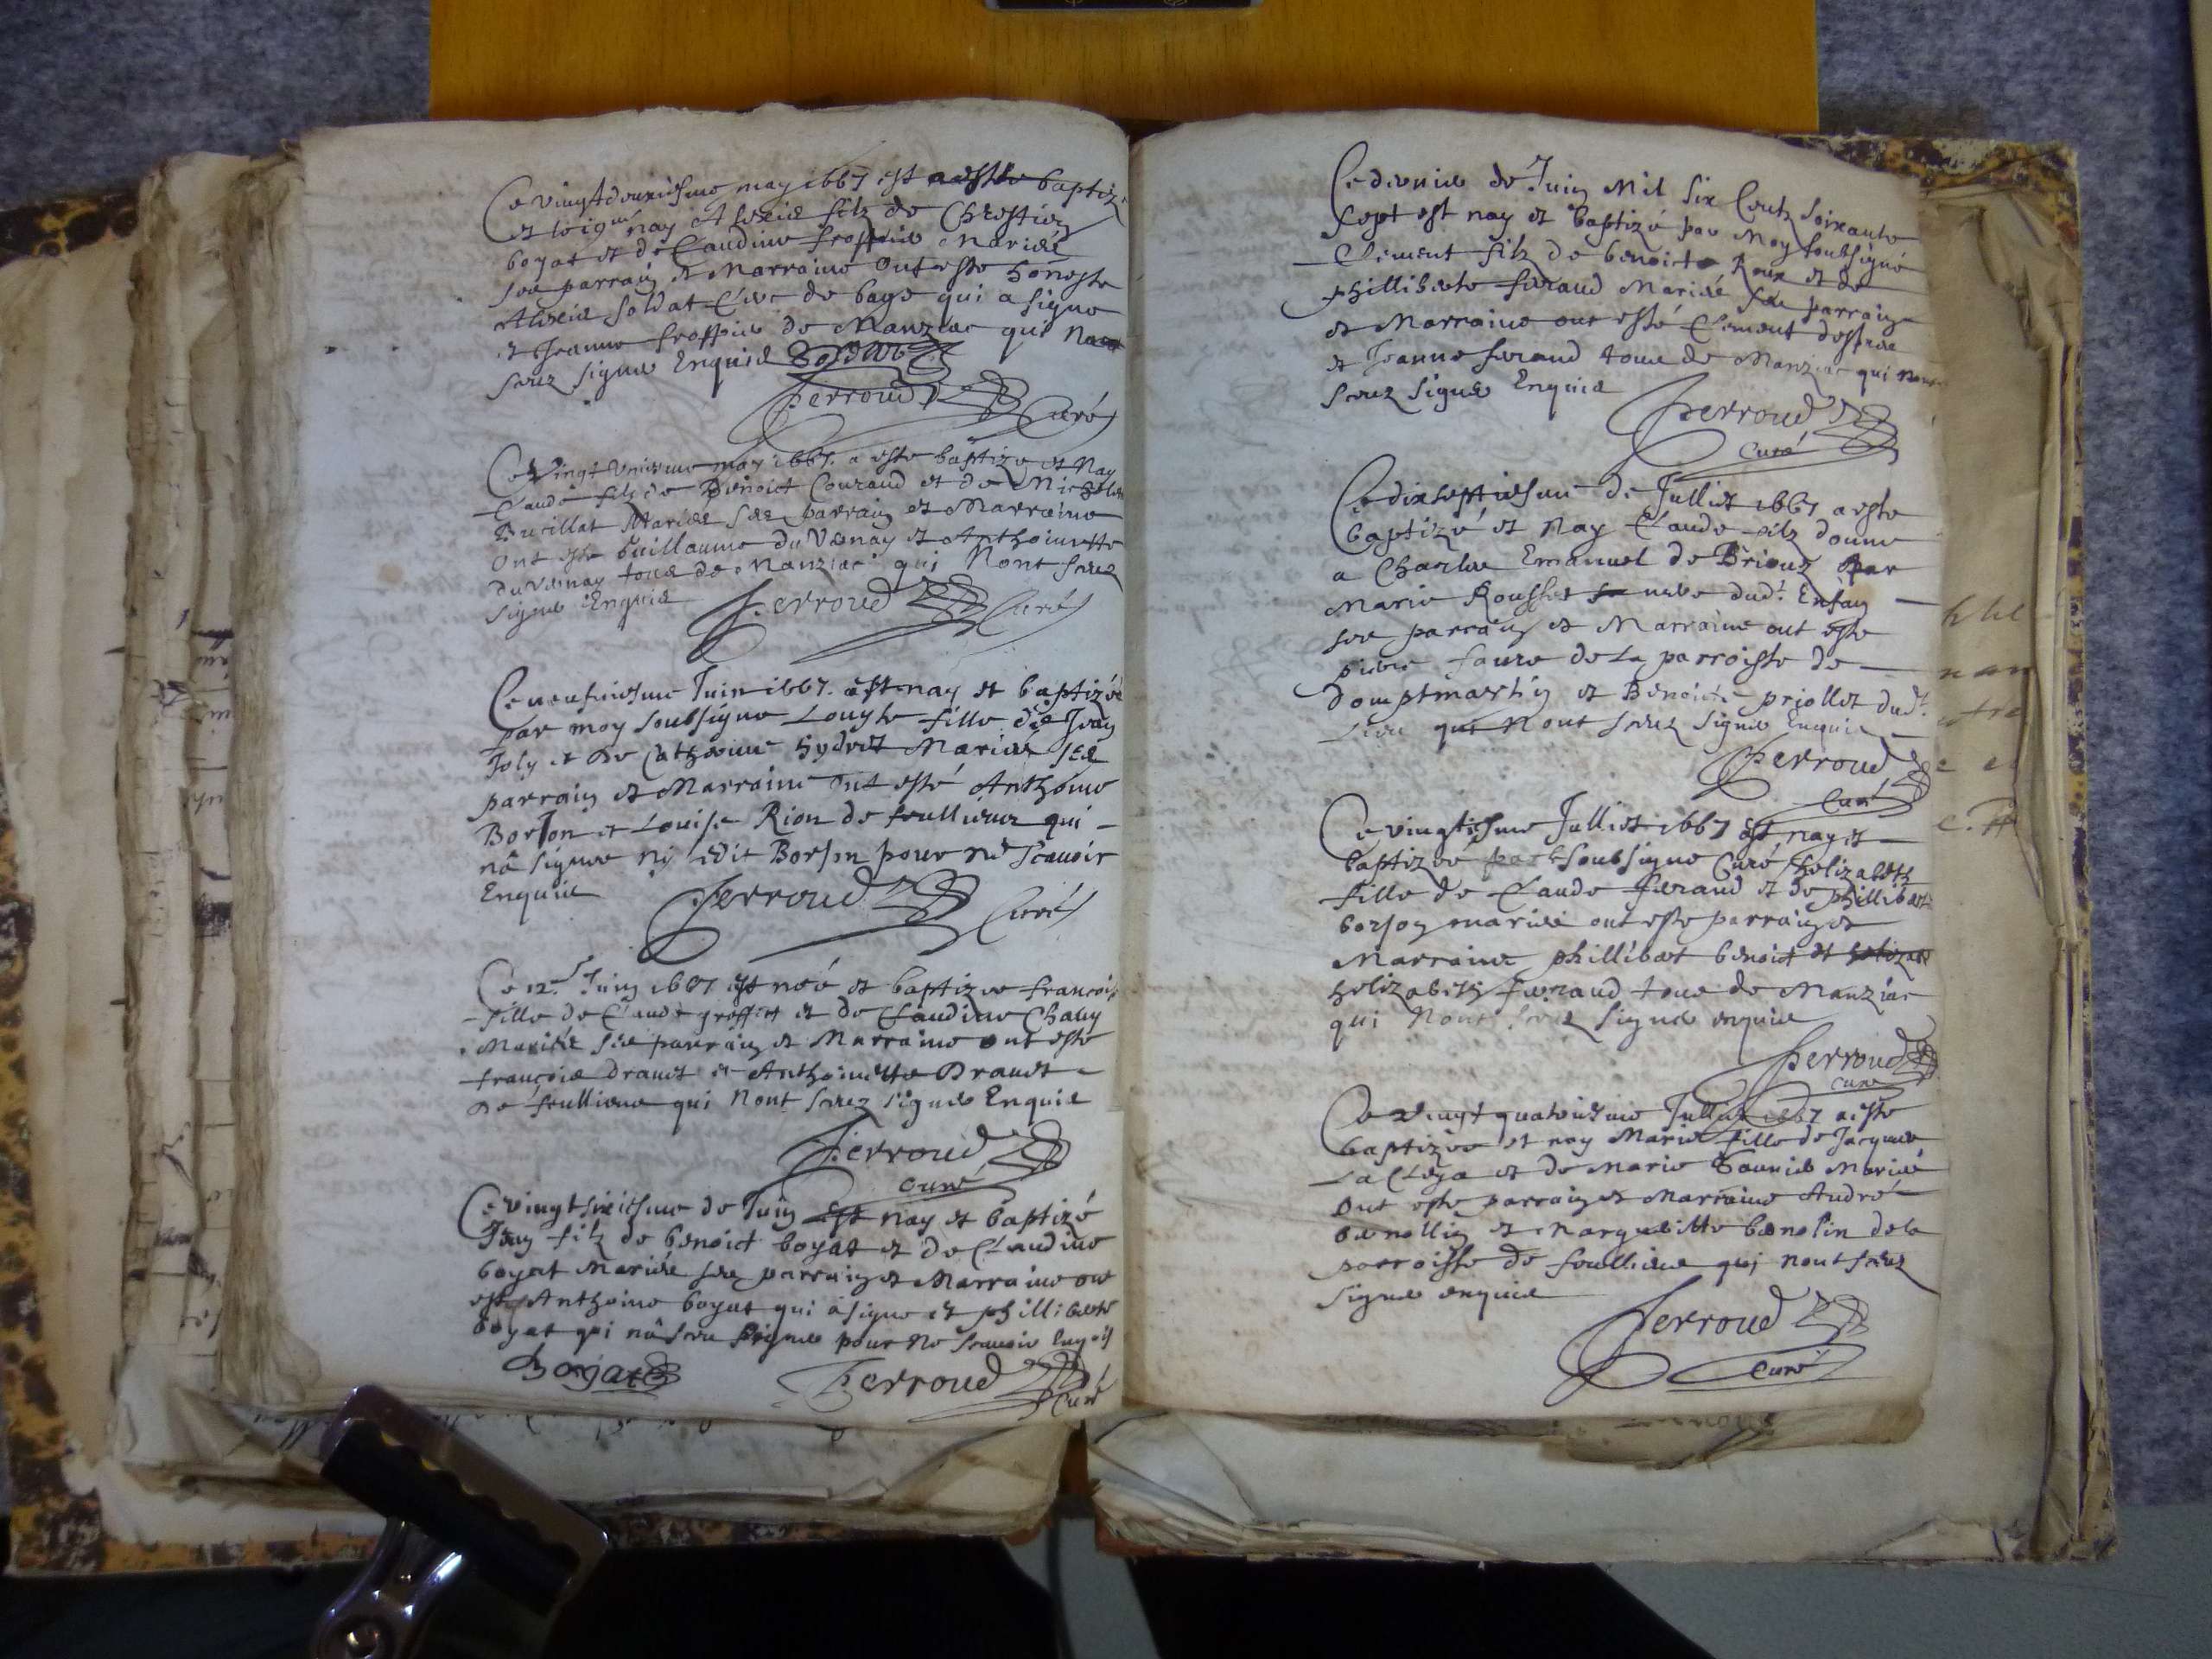 Ce vingtdeuxiesme may 1667 est a esté baptizé
et nay Alexis filz de Chrestien
boyat et de Claudine froppier Mariés
ses parrain et Marraine ont esté honeste
Alexis soldat Clerc de bage qui a signe
et Jeanne froppier de Manziac qui
sceuz signer Enquis
Perroud Curé
Ce Vingt uniesme may 1667 a esté baptize et Nay
Claude filz de Benoict Couraud et de
Bucillat Mariés ses parrain et Marraine
Ont este Guillaume du Vernay et Anthoinette
du Vernay tous de Manziac qui Nont sceuz
signer Enquis
Perroud Curé
Ce neufuiesme Juin 1667. est nay et baptizée
par moy soubsigne Louyse fille de Jean
Joly et de Catherine Mariés ses
parrain et Marraine ont esté Anthoine
Borson et Louise Rion de feulliens qui
nâ signer ny ledit Borson pour ne scauoir
Enquis
Perroud Curé
Ce 12e Juin 1667 est néé et baptizee francoise
fille de Claude groffet et de Claudine Chany
Mariés ses parrain et Marraine ont este
françois drauet et Anthoinette Drauet
de feulliens qui Nont sceuz signer Enquis
Perroud
Curé
Ce vingt sixiesme de Juin Est nay et baptizé
Jean filz de benoict boyat et de Claudine
boyat Mariés ses parrain et Marraine ont
este Anthoine boyat qui a signe et philliberte
boyat qui nâ sceu signer pour ne scauoir Enquis
Boyat Perroud
Curé
Ce dernier de Juin Mil Six Centz soixante
sept est nay et baptizé par Moy soubsigné
Clement filz de benoict Roux et de
phillberte feraud Mariés ses parrain
et Marraine ont esté Clement
et Jeanne feraud tous de Manziac qui nont
sceuz signer Enquis
Perroud
Curé
Ce dixseptiesme de Julliet 1667 a este
baptizé et Nay Claude filz donne
a Charles Emanuel de Brioux Par
Marie Rousset mere dudt Enfan
ses parrain et Marraine ont este
pierre faure de La parroisse de
domptmartin et Benoicte priollet dudt
Lieu qui Nont sceuz signer Enquis
Perroud
Curé
Ce vingtiesme Julliet 1667 est nay et
baptizeé par soubsigne Curé helizabeth
fille de Claude feraud et de phillibert
borson mariés ont este parrain et
Marraine phillibert benoict et
helizabeth feraud tous de Manziac
qui Nont sceuz signer enquis
Perroud
Curé
Ce vingt quatriesme Julliet 1667 a este
baptizee et nay Marie fille de Jacques
La Clega et de Marie Mariés
Ont este parrain et Marraine André
benollin et Margueritte benolin de la
parroisse de feulliens qui nont sceuz
signer enquis
Perroud
Curé